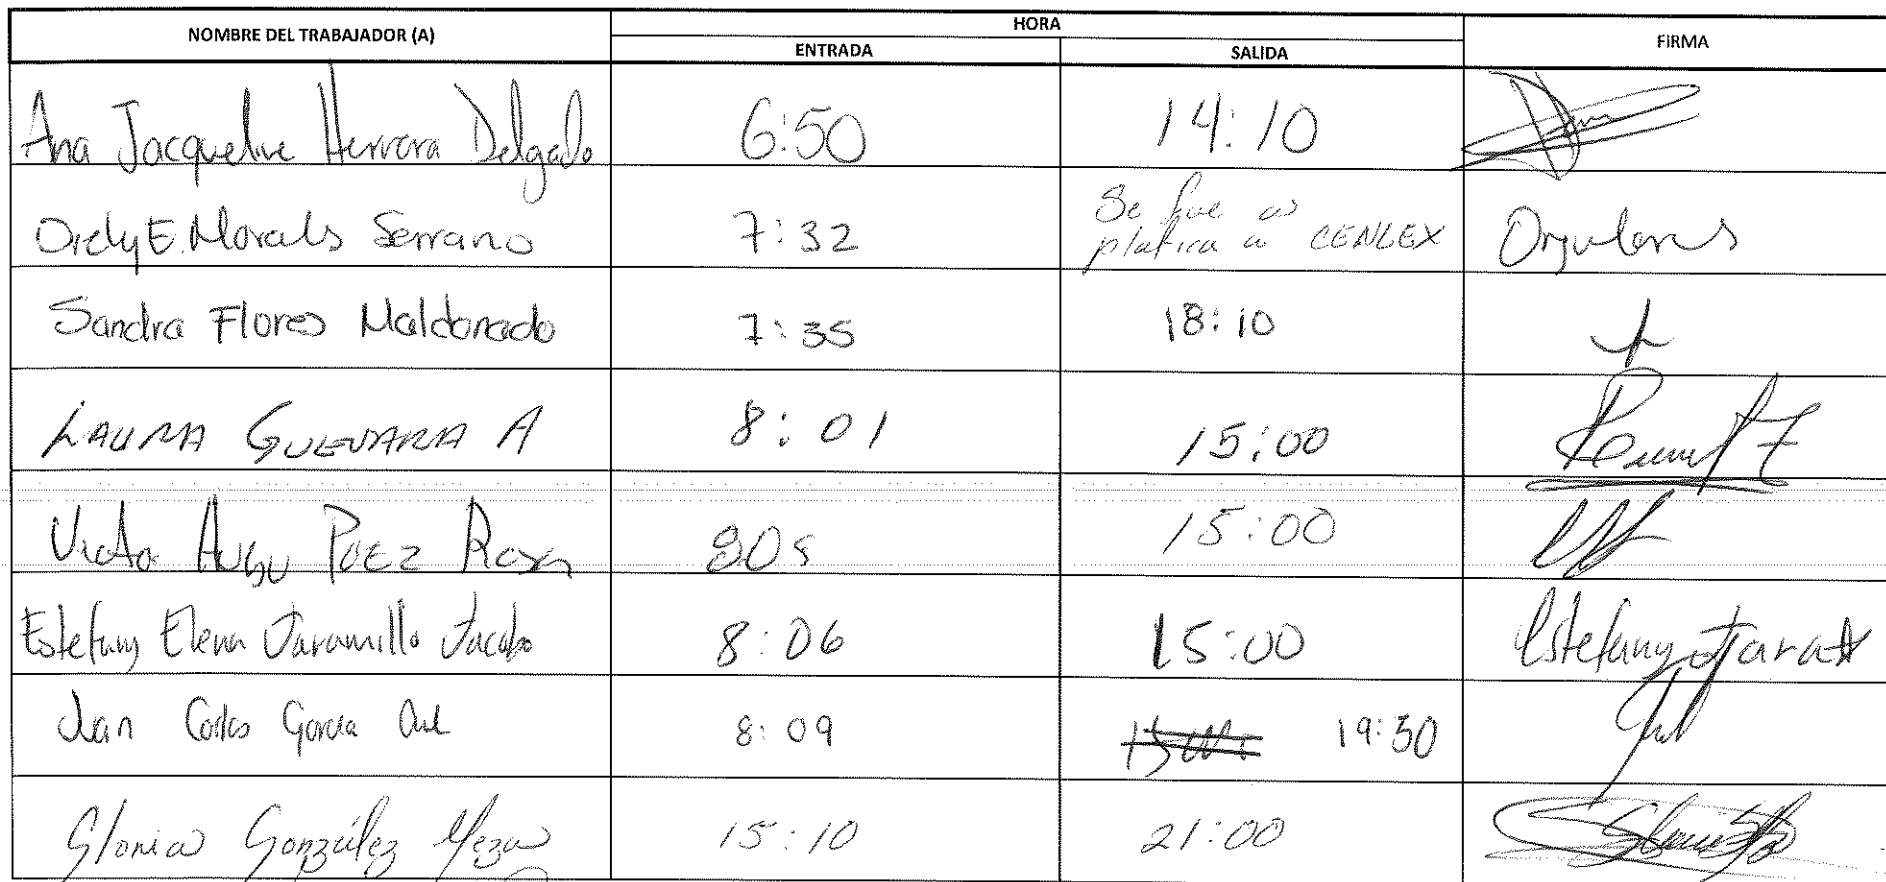 NOMBRE DEL TRABAJADOR (A) HORA FIRMA
ENTRADA SALIDA
Ana Jacqueline Herrera Delgado 6:50 14:10
Orely E. Morales Serrano 7:32 Se fue a
platica a CENLEX
Sandra Flores Maldonado 7:35 18:10
LAURA GUEVARA A 8:01 15:00
Victor Hugo PAEZ 15:00
Estefany Elena Jaramillo Jacobo 8:06 15:00 Estefany Jara
Juan Carlos García 8:09 19:30
Gloria González Meza 15:10 21:00